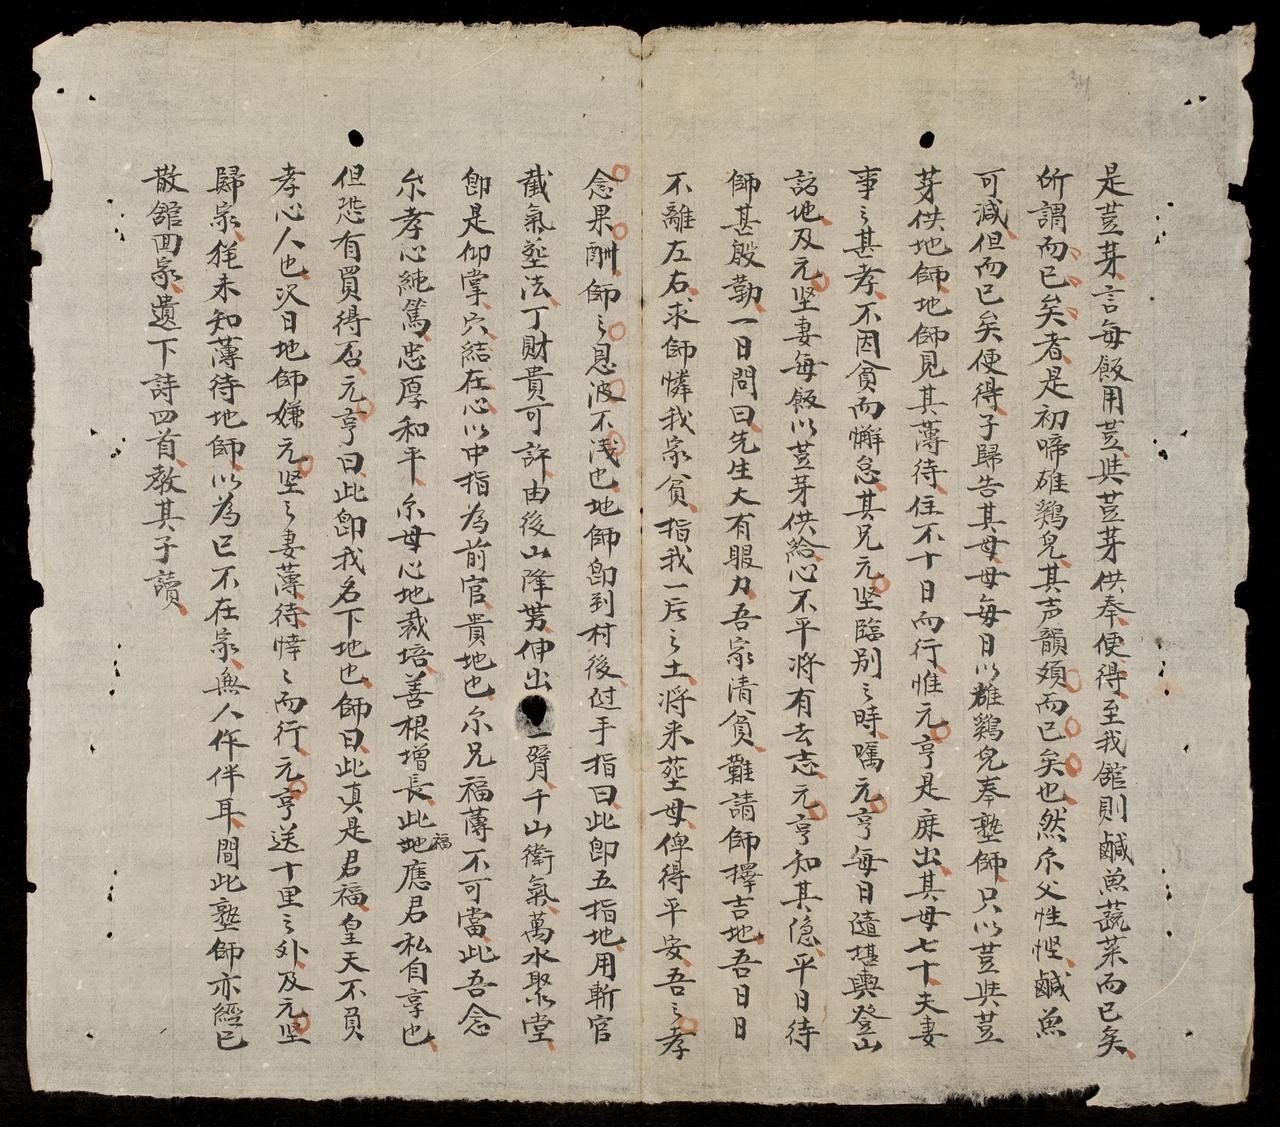 是荳芽言每飯用荳與荳芽供奉便得至我舘則鹹魚蔬菜而已矣
所謂而已矣者是初啼雄鷄兒其声韻頻而已矣也然尒父性慳鹹魚
可減但而已矣便得子歸告其母母每日以雄鷄兒奉塾師只以荳與荳
芽供地師地師見其薄待住不十日而行惟元亨是庶出其母七十夫妻
事之甚孝不因貧而懈怠其兄元坚臨别之時嘱元亨每日隨堪輿登山
訪地及元坚妻每飯以荳芽供給心不平将有去志元亨知其隐平日待
師甚殷勤一日問曰先生大有眼力吾家清貧難請師擇吉地吾日日
不離左右求師憐我家貧指我一坵之土将来塟母俾得平安吾之孝
念果酬師之恩波不浅也地師即到村後过手指曰此即五指地用斬官
截氣塟法丁財貴可許由後山降势伸出一臂千山衛氣萬水聚堂
即是仰掌穴結在心以中指為前官貴地也尒兄福薄不可當此吾念
尒孝心純篤忠厚和平尒母心地栽培善根增長此福地應君私自享也
但恐有買得否元亨曰此即我名下地也師曰此真是君福皇天不負
孝心人也次日地師嫌元坚之妻薄待悻悻而行元亨送十里之外及元坚
歸家猶未知薄待地師以為已不在家無人作伴耳間此塾師亦經已
散舘回家遺下詩四首教其子讀